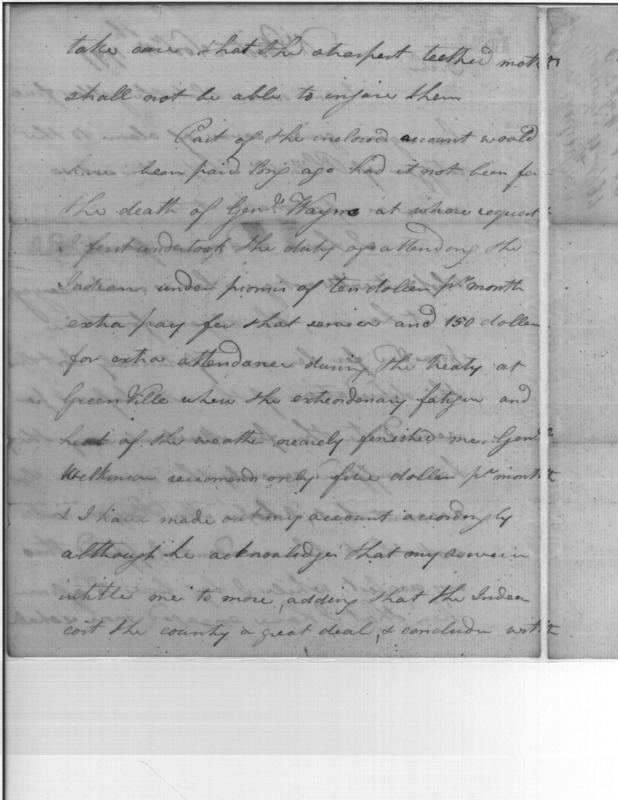 take care that the sharpest teethed moth
shall not be able to injure them
Part of the inclosed account would
have been paid long ago had it not been for
the death of Genl. Wayne at whose request
I first undertook the duty of attending the
Indians under promis of ten dollars pr. month
extra pay for that service and 150 dollars
for extra attendance during the treaty at
GreenVille when the extreordenary fatigue and
heat of the weather nearely finished me. Genl.
Wilkinson reccomends only five dollars pr. month
& I have made out my account accordingly
although he acknowledges that my services
intitle me to more, adding that the Indean
cost the county a great deal, & concludes with